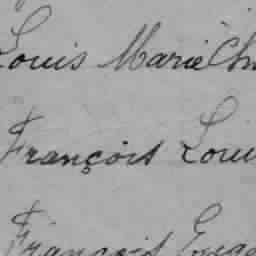 Louis Marie Ch
François Loui
François Euge